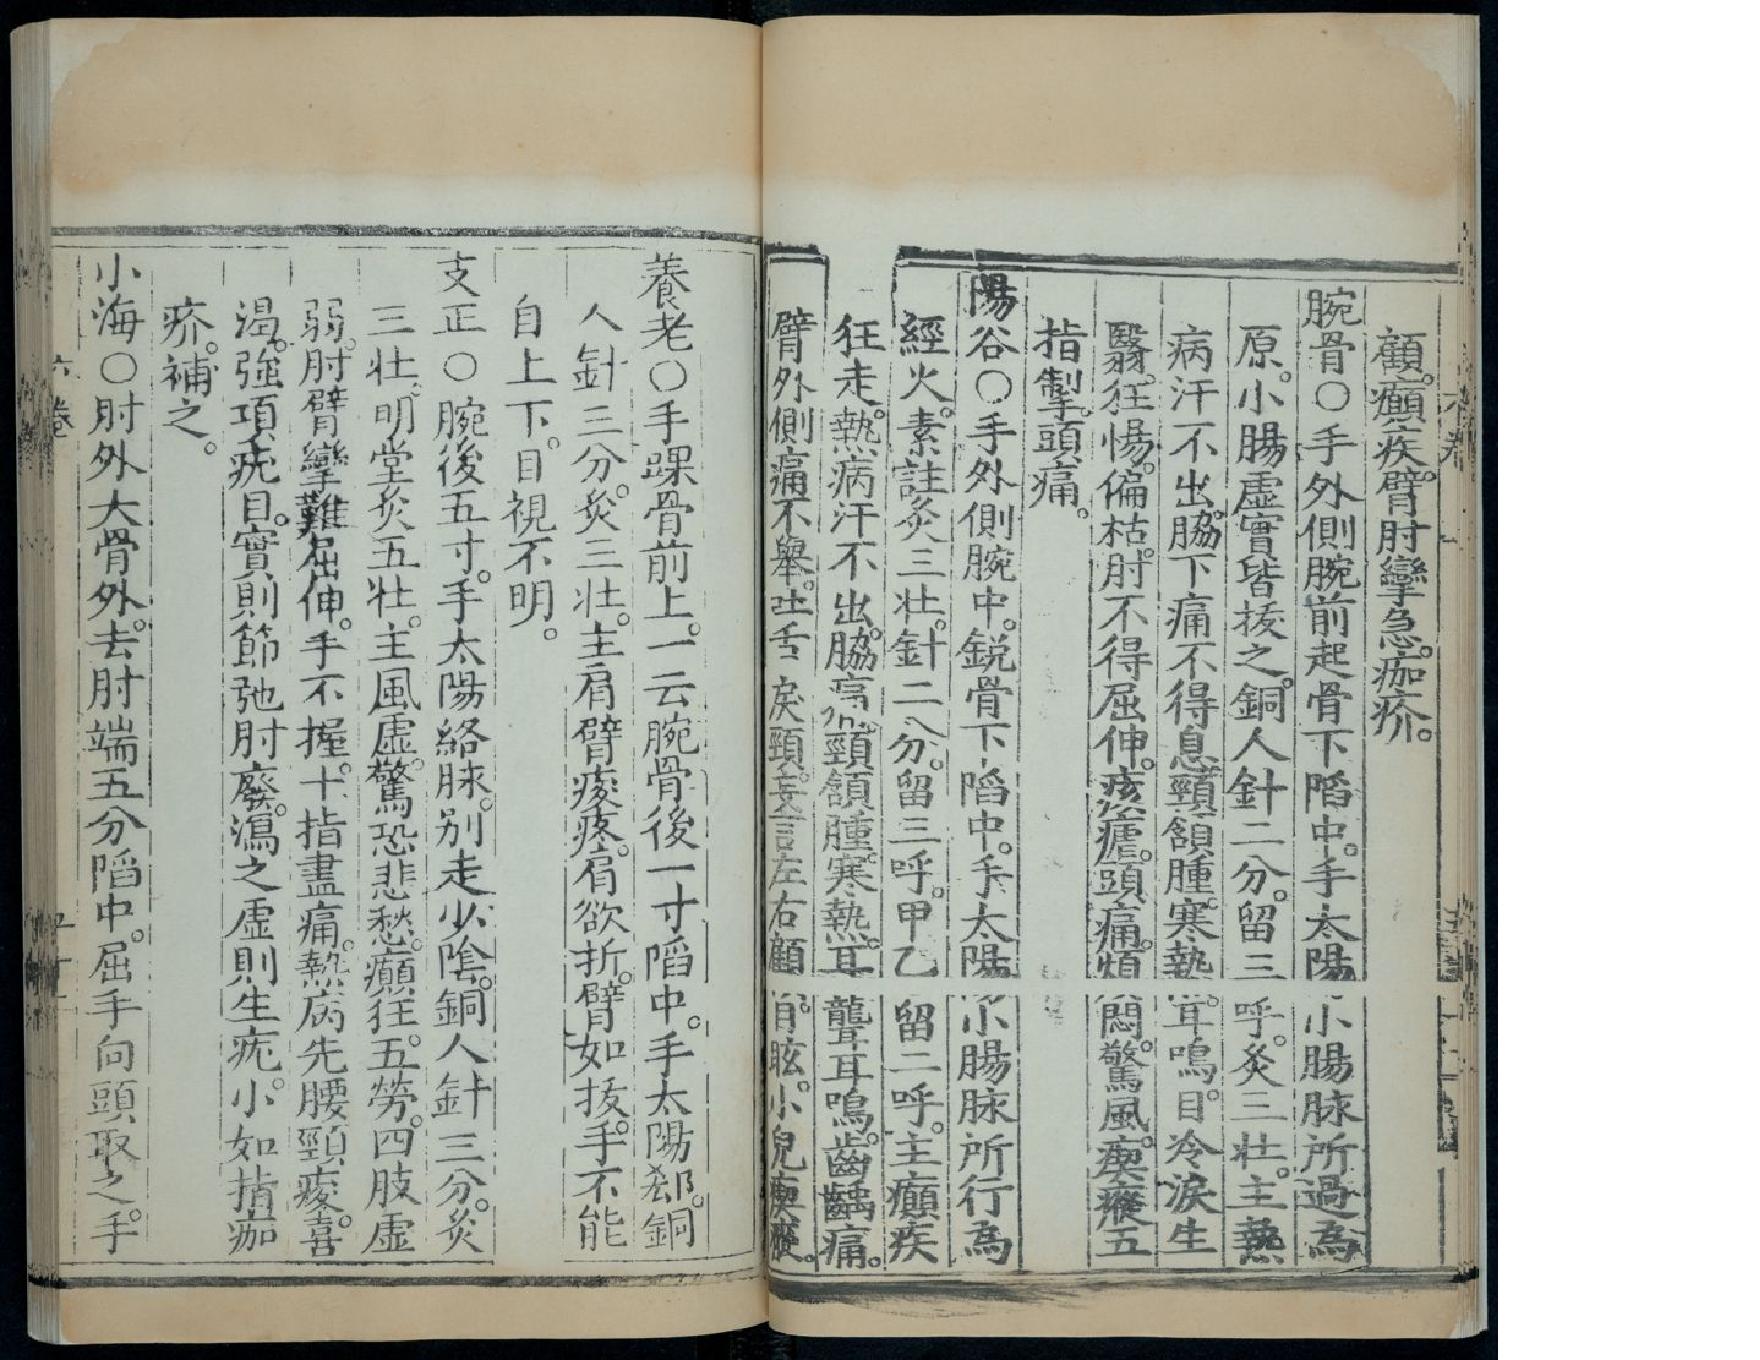 顧。癲疾。臂肘攣急。痂疥。
腕骨〇手外側腕前起骨下陷中。手太陽小腸脉所過為
原。小腸虛實皆拔之。銅人針二分。留三呼。灸三壯。主熱
病汗不出。脇下痛不得息。頸頷腫。寒熱。耳鳴。目冷淚生
翳。狂惕。偏枯。肘不得屈伸。痎瘧。頭痛。煩悶。驚風。瘈瘲。五
指掣。頭痛。
陽谷〇手外側腕中。銳骨下陷中。手太陽小腸脉所行為
經火。素註灸三壯。針二分。留三呼。甲乙留二呼。主癲疾
狂走。熱病汗不出。脇痛。頸頷腫。寒熱。耳聾耳鳴。齒齲痛。
臂外側痛不舉。吐舌戾頸。妄言左右顧。目眩。小兒瘈瘲。
養老〇手踝骨前上。一云腕骨後一寸陷中。手太陽郄。銅
人針三分。灸三壯。主肩臂痠疼。肩欲折。臂如拔。手不能
自上下。目視不明。
支正〇腕後五寸。手太陽絡脉。別走少陰。銅人針三分。灸
三壯。明堂灸五壯。主風虛。驚恐悲愁。癲狂。五勞。四肢虛
弱。肘臂攣難屈伸。手不握。十指盡痛。熱病先腰頸痠。喜
渴。強項。疣目。實則節弛肘廢。瀉之。虛則生疣。小如指痂
疥。補之。
小海〇肘外大骨外。去肘端五分陷中。屈手向頭取之。手
六卷